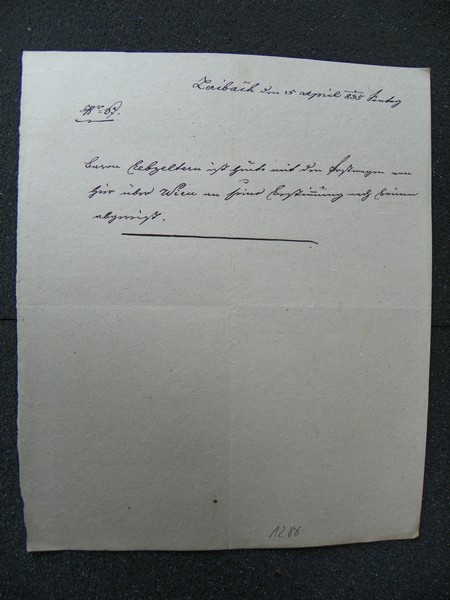 Laibach den 5 April 835 Sontag
Baron Lebzeltern ist heute mit den Postwagen von
hier über Wien an seine Bestimmung nach
abgereist.
1286